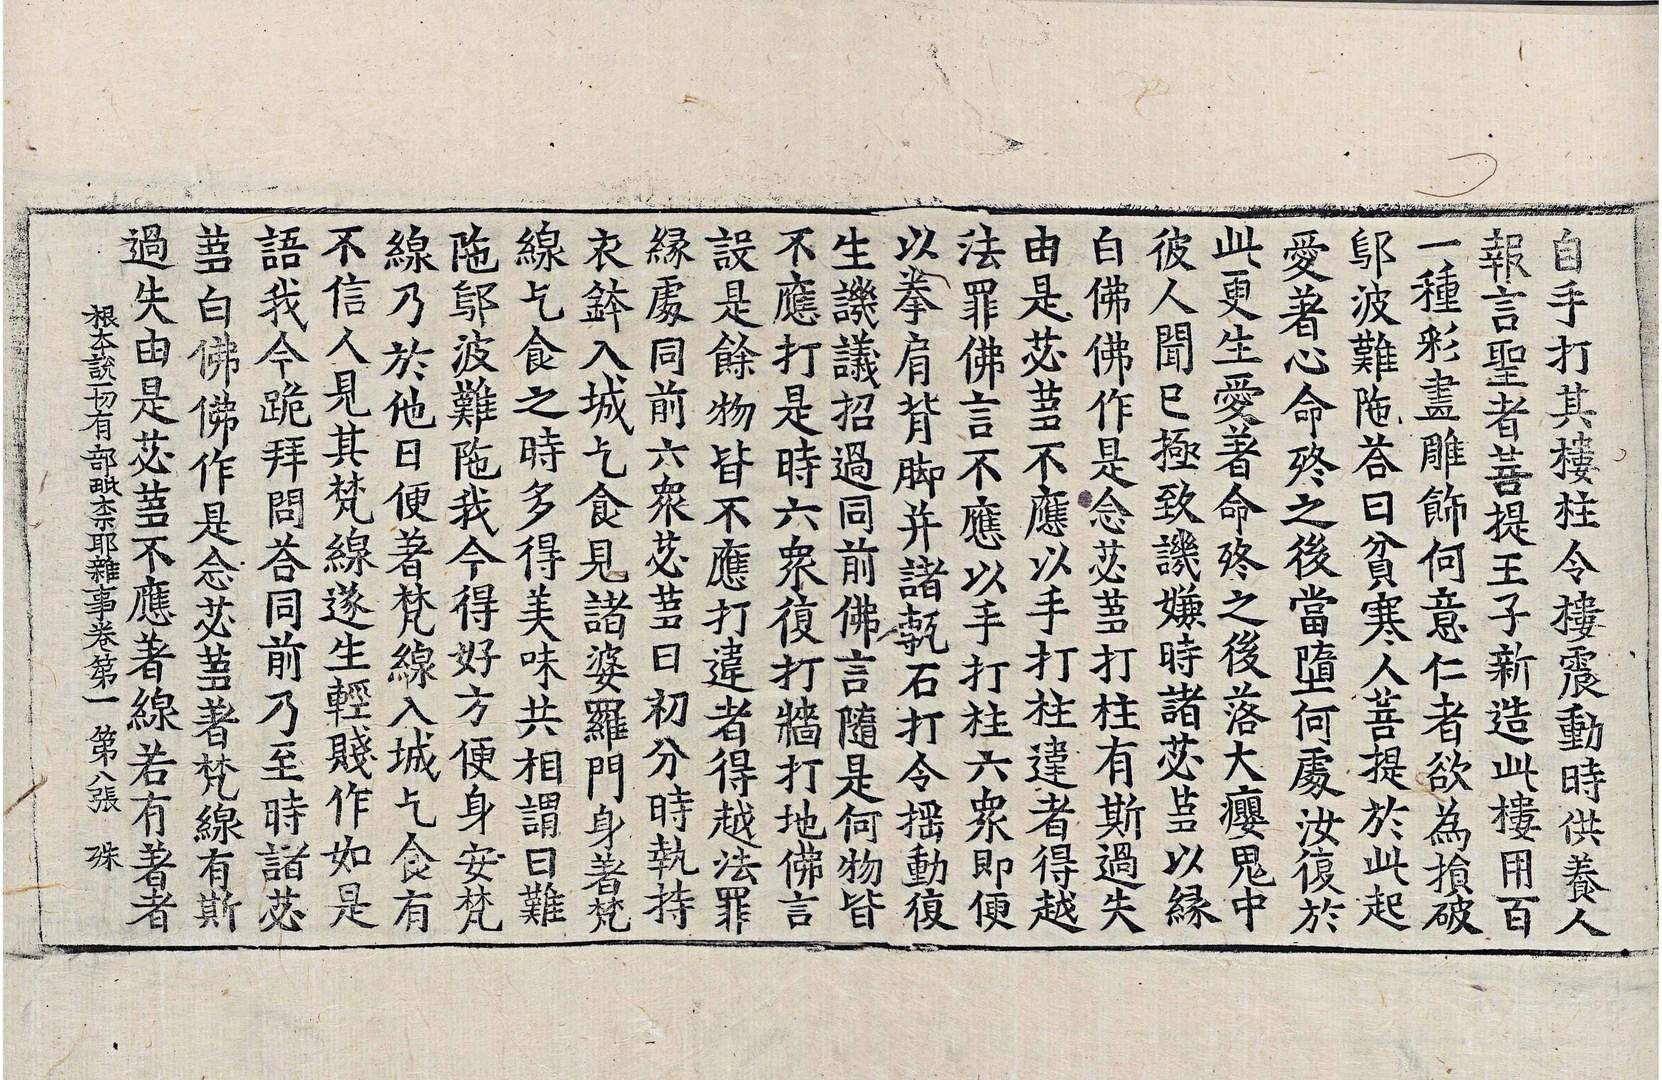 自手打其樓柱令樓震動時供養人
報言聖者菩提王子新造此樓用百
一種彩畫雕飾何意仁者欲為損破
鄔波難陁荅曰貧寒人菩提於此起
愛著心命終之後當墮何處汝復於
此更生愛著命終之後落大癭鬼中
彼人聞已極致譏嫌時諸苾芻以緣
白佛佛作是念苾芻打柱有斯過失
由是苾芻不應以手打柱違者得越
法罪佛言不應以手打柱六衆即便
以拳肩背脚并諸甎石打令搖動復
生譏議招過同前佛言隨是何物皆
不應打是時六衆復打牆打地佛言
設是餘物皆不應打違者得越法罪
緣處同前六衆苾芻日初分時執持
衣鉢入城乞食見諸婆羅門身著梵
線乞食之時多得美味共相謂曰難
陁鄔波難陁我今得好方便身安梵
線乃於他日便著梵線入城乞食有
不信人見其梵線遂生輕賤作如是
語我今跪拜問荅同前乃至時諸苾
芻白佛佛作是念苾芻著梵線有斯
過失由是苾芻不應著線若有著者
根本說一切有部毗奈耶雜事卷第一 第八張 姝